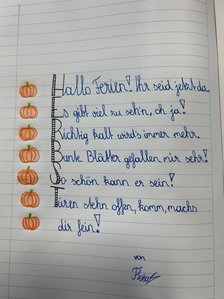 Hallo Ferien! Ihr seid jetzt da.
Es gibt viel zu seh'n, oh ja!
Richtig kalt wird's immer mehr.
Bunte Blätter gefallen mir sehr!
So schön kann er sein!
Türen stehn offen, komm, machs
dir fein!
von